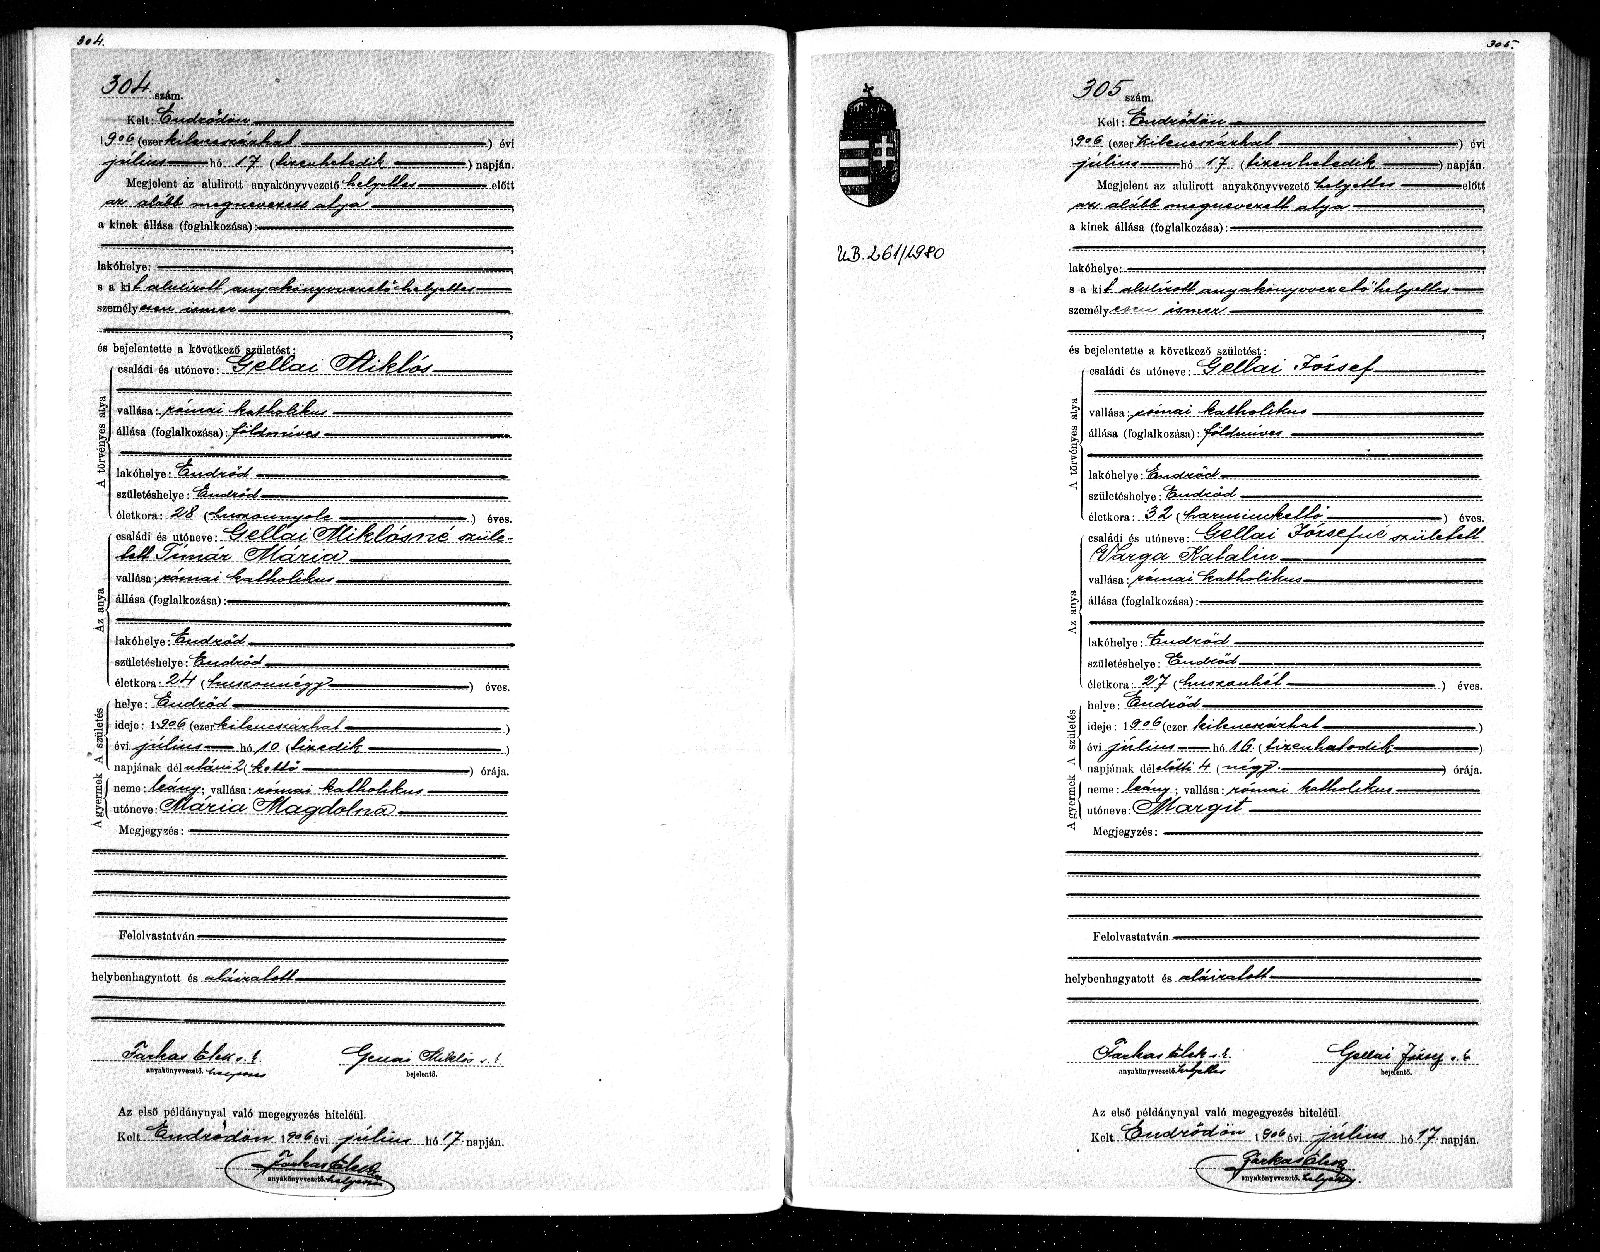 304.
304 szám.
Kelt: Endrődön
1906 (ezer kilencszázhat ) évi
július hó 17 (tizenhetedik ) napján.
Megjelent az alulirott anyakönyvvezető helyettes előtt
az alább megnevezett atya ,
a kinek állása (foglalkozása):
,
lakóhelye:
s a kit alulírott anyakönyvvezető helyettes
személyesen ismer
,
és bejelentette a következő születést:
A törvényes atya
családi és utóneve: Gellai Miklós
vallása: római katholikus
állása (foglalkozása): földmíves
lakóhelye: Endrőd
születéshelye: Endrőd
életkora: 28 (huszonnyolc ) éves.
Az anya
családi és utóneve: Gellai Miklósné szüle-
tett Tímár Mária
vallása: római katholikus
állása (foglalkozása):
lakóhelye: Endrőd
születéshelye: Endrőd
életkora: 24 (huszonnégy ) éves.
A születés
helye: Endrőd
ideje: 1906 (ezer kilencszázhat )
évi július hó 10 (tizedik )
napjának délutáni 2 (kettő ) órája.
A gyermek
neme: leány; vallása: római katholikus
utóneve: Mária Magdolna
Megjegyzés:
Felolvastatván
helybenhagyatott és aláiratott
Farkas Elek s. k. Miklós s. k.
anyakönyvvezető. helyettes bejelentő.
Az első példánynyal való megegyezés hiteléül.
Kelt Endrődön 1906 évi július hó 17 napján.
Farkas Elek
anyakönyvvezető. helyettes
305.
U.B. 261/1980
305 szám.
Kelt: Endrődön
1906 (ezer kilencszázhat ) évi
július hó 17 (tizenhetedik ) napján.
Megjelent az alulirott anyakönyvvezető helyettes előtt
az alább megnevezett atya ,
a kinek állása (foglalkozása):
,
lakóhelye:
s a kit alulírott anyakönyvvezető helyettes
személyesen ismer
,
és bejelentette a következő születést:
A törvényes atya
családi és utóneve: Gellai József
vallása: római katholikus
állása (foglalkozása): földmíves
lakóhelye: Endrőd
születéshelye: Endrőd
életkora: 32 (harminckettő ) éves.
Az anya
családi és utóneve: Gellai Józsefné született
Varga Katalin
vallása: római katholikus
állása (foglalkozása):
lakóhelye: Endrőd
születéshelye: Endrőd
életkora: 27 (huszonhét ) éves.
A születés
helye: Endrőd
ideje: 1906 (ezer kilencszázhat )
évi július hó 16 (tizenhatodik )
napjának délelőtti 4 (négy ) órája.
A gyermek
neme: leány; vallása: római katholikus
utóneve: Margit
Megjegyzés:
Felolvastatván
helybenhagyatott és aláiratott
Farkas Elek s. k. Gellai József s. k.
anyakönyvvezető. helyettes bejelentő.
Az első példánynyal való megegyezés hiteléül.
Kelt Endrődön 1906 évi július hó 17 napján.
Farkas Elek
anyakönyvvezető. helyettes